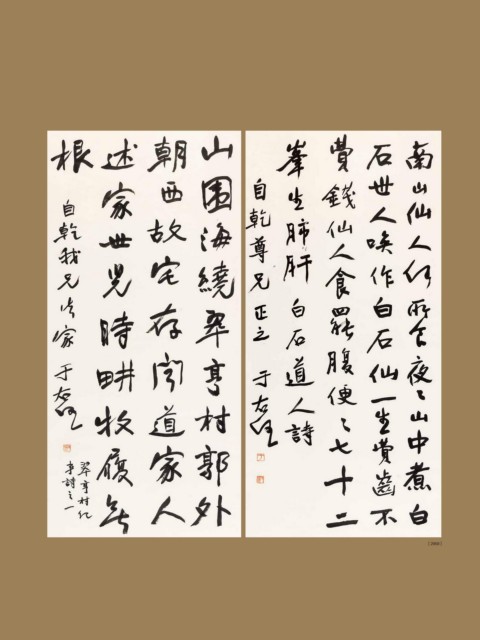 南山仙人何所食夜〻山中煮白
石世人喚作白石仙一生費齒不
費錢仙人食罷腹便〻七十二
峯生肺肝 白石道人詩
自乾尊兄正之 于右任
山围海繞翠亨村郭外
朝西故宅存闻道家人
述家世兒時畊牧履無
根
自乾我兄法家 于右任
翠亨村纪
事詩之一